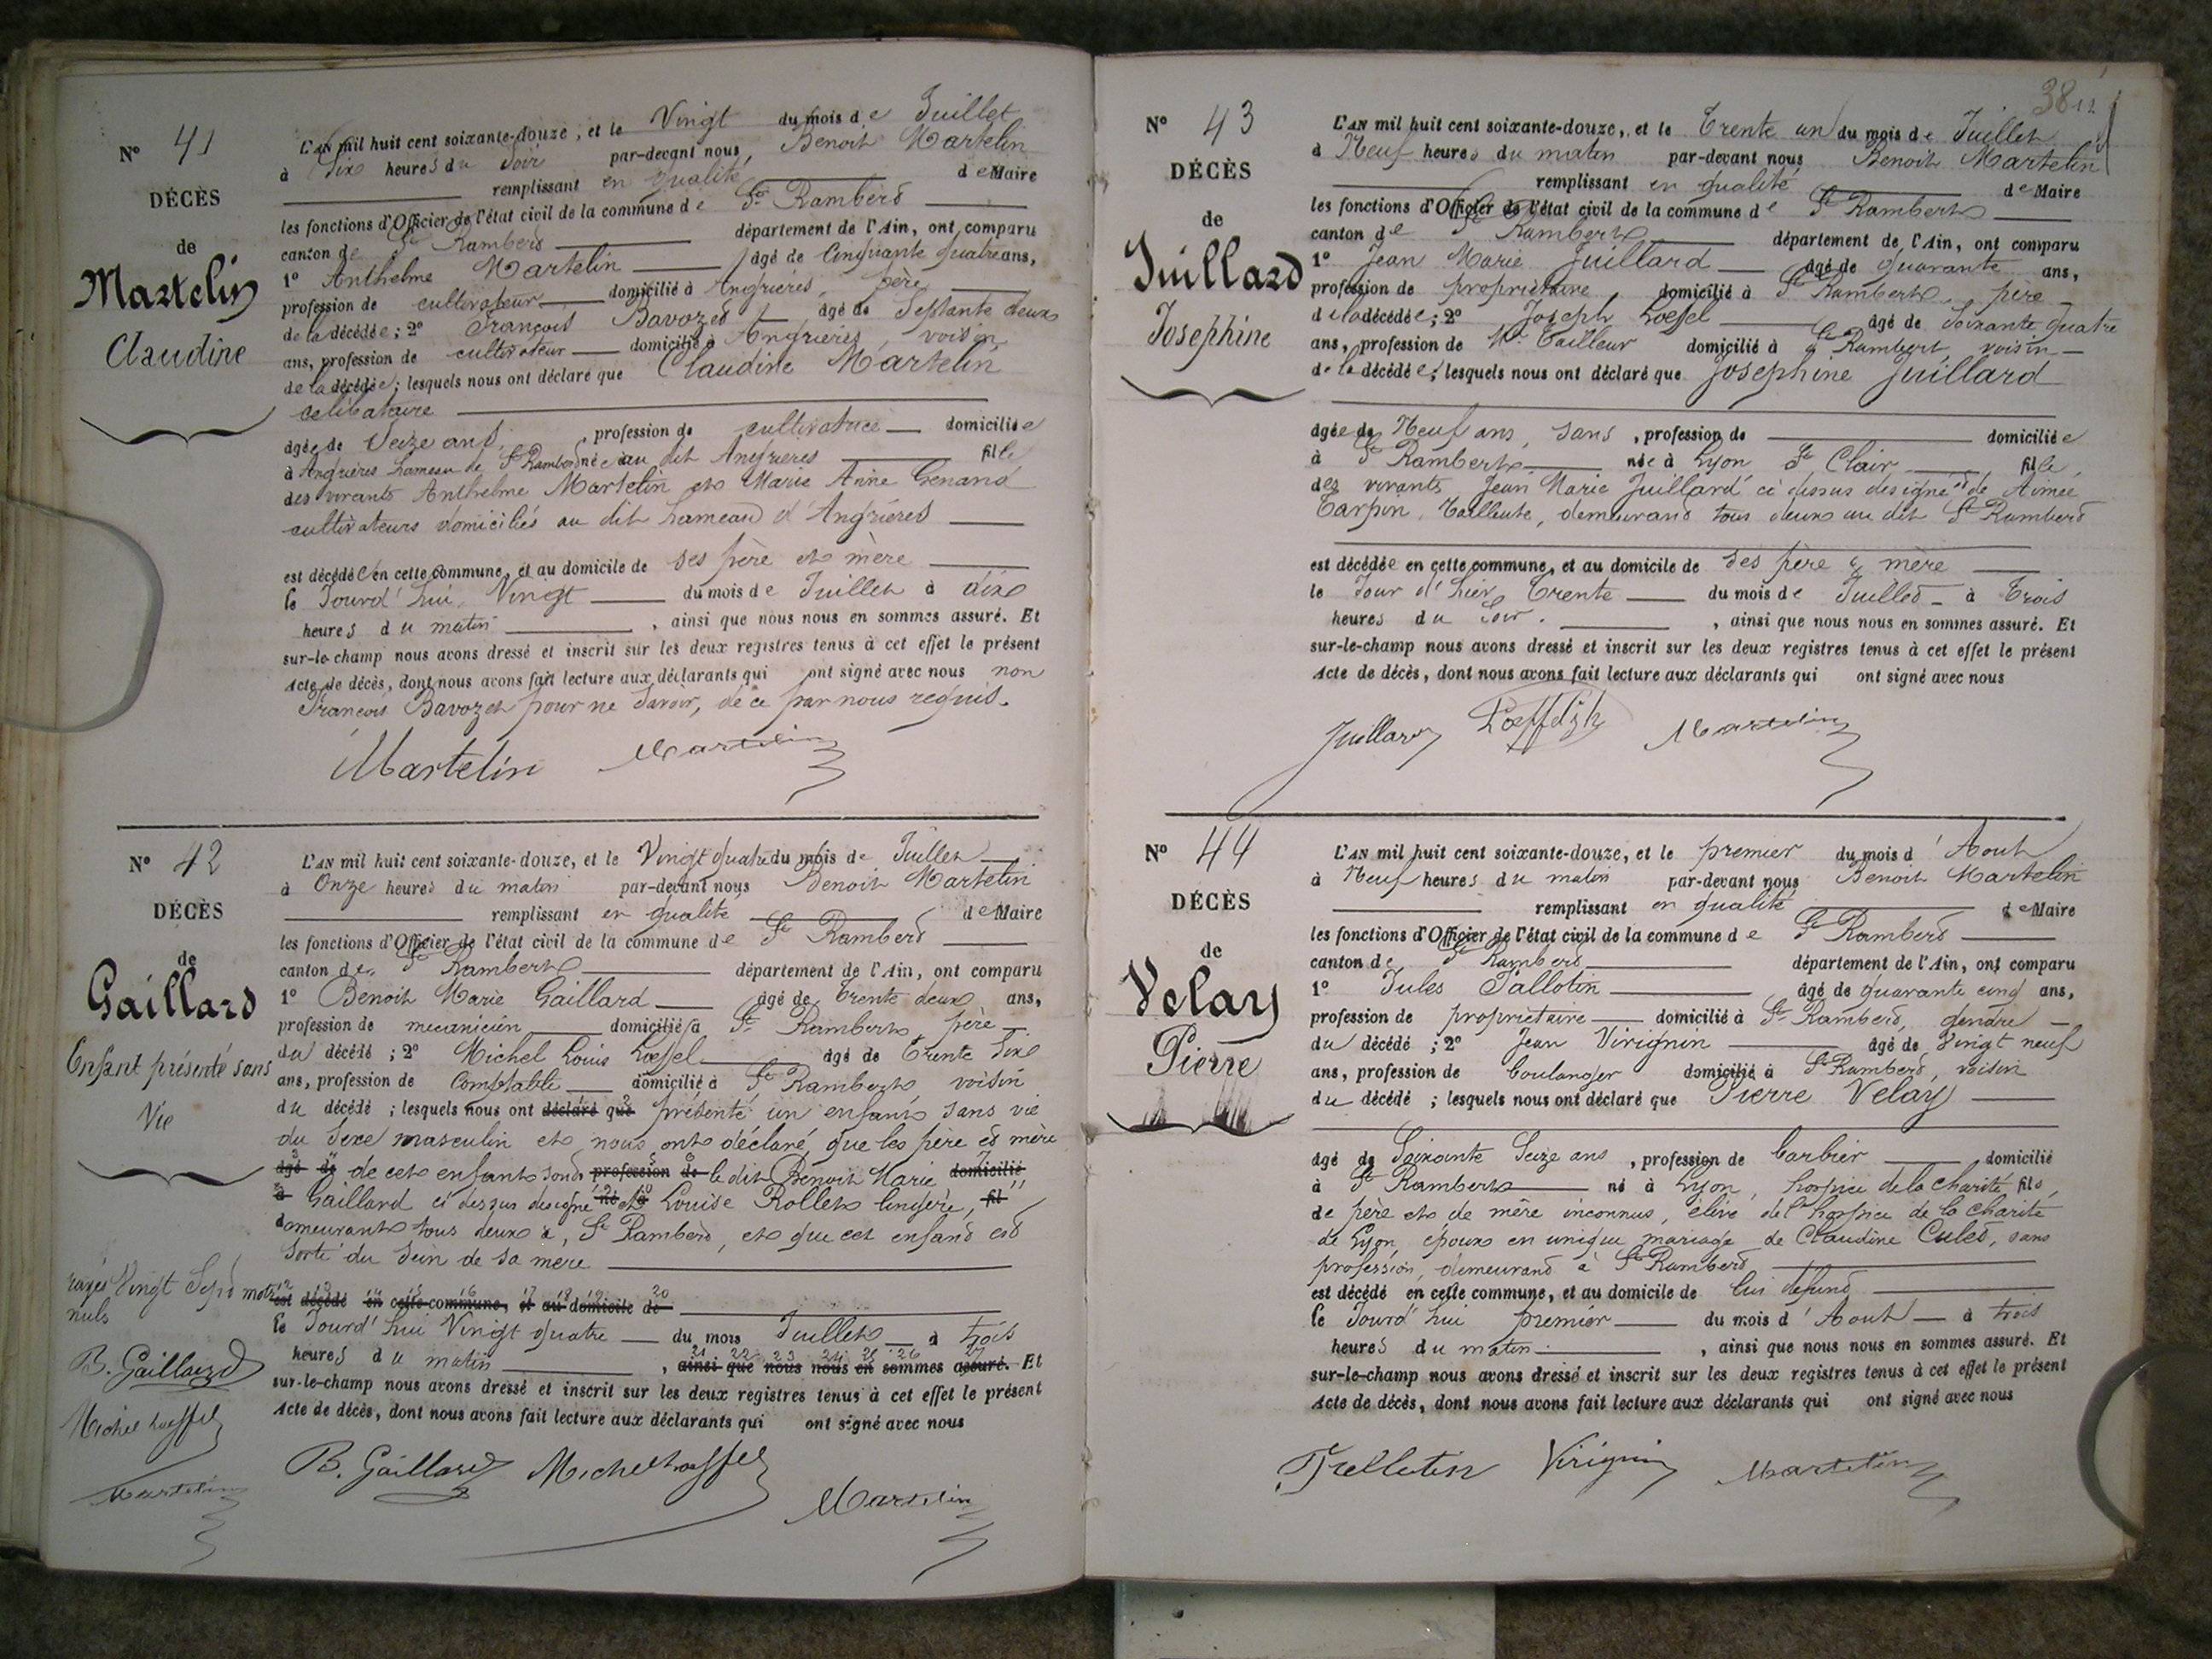 N° 41
DÉCÈS
de
Martelin
Claudine
L'AN mil huit cent soixante-douze, et le Vingt du mois de Juillet
à Six heures du Soir par-devant nous, Benoit Martelin
remplissant en qualité de Maire
les fonctions d'Officier de l'état civil de la commune de St Rambert
canton de St Rambert département de l'Ain, ont comparu
1° Anthelme Martelin âgé de Cinquante quatre ans,
profession de cultivateur domicilié à Angrières, père
de la décédée; 2° François Bavozet âgé de Septante deux
ans, profession de cultivateur domicilié à Angrières, voisin
de la décédée; lesquels nous ont déclaré que Claudine Martelin
celibataire
âgée de Seize ans, profession de cultivatrice domiciliée
à Angrières hameau de St Rambert née au dit Angrières fille
des vivants Anthelme Martelin et Marie Anne Genand
cultivateurs domiciliés au dit hameau d'Angrières
est décédée en cette commune, et au domicile de ses père et mère
le Jourd'hui Vingt du mois de Juillet à dix
heures du matin, ainsi que nous nous en sommes assuré. Et
sur-le-champ nous avons dressé et inscrit sur les deux registres tenus à cet effet le présent
Acte de décès, dont nous avons fait lecture aux déclarants qui ont signé avec nous non
François Bavozet pour ne savoir, de ce par nous requis.
Martelin Martelin
N° 42
DÉCÈS
de
Gaillard
Enfant présenté sans
Vie
L'AN mil huit cent soixante-douze, et le Vingt quatre du mois de Juillet
à Onze heures du matin par-devant nous Benoit Martelin
remplissant en qualité de Maire
les fonctions d'Officier de l'état civil de la commune de St Rambert
canton de St Rambert département de l'Ain, ont comparu
1° Benoit Marie Gaillard âgé de Trente deux ans,
profession de mecanicien domicilié à St Rambert, père
du décédé; 2° Michel Louis Loeffel âgé de Trente Six
ans, profession de Comptable domicilié à St Rambert voisin
du décédé; lesquels nous ont déclaré que présenté un enfant sans vie
du Sexe masculin et nous ont déclaré que les père et mère
âgé de de cet enfant sont profession de le dit Benoit Marie domicilié
à Gaillard ci dessus designé né à et Louise Rollet lingère, fil
demeurants tous deux à St Rambert, et que cet enfant est
sorti du sein de sa mere
est décédé en cette commune, et au domicile de
le Jourd'hui Vingt quatre du mois Juillet à trois
heures du matin, ainsi que nous nous en sommes assuré. Et
sur-le-champ nous avons dressé et inscrit sur les deux registres tenus à cet effet le présent
Acte de décès, dont nous avons fait lecture aux déclarants qui ont signé avec nous
rayés Vingt Sept mots
nuls
B. Gaillard
Michel Loeffel
Martelin
B. Gaillard Michel Loeffel
Martelin
38
N° 43
DÉCÈS
de
Juillard
Josephine
L'AN mil huit cent soixante-douze, et le Trente un du mois de Juillet
à Neuf heures du matin par-devant nous Benoit Martelin
remplissant en qualité de Maire
les fonctions d'Officier de l'état civil de la commune de St Rambert
canton de St Rambert département de l'Ain, ont comparu
1° Jean Marie Juillard âgé de quarante ans,
profession de propriétaire domicilié à St Rambert, père
de la décédée; 2° Joseph Loeffel âgé de Soixante quatre
ans, profession de Md Tailleur domicilié à St Rambert, voisin
de la décédée; lesquels nous ont déclaré que Josephine Juillard
âgée de Neuf ans, sans, profession de domiciliée
à St Rambert née à Lyon St Clair, fille
des vivants Jean Marie Juillard ci dessus designé et de Aimée
Tarpin, Tailleuse, demeurant tous deux au dit St Rambert
est décédée en cette commune, et au domicile de ses père & mère
le Jour d'hier Trente du mois de Juillet à Trois
heures du Soir., ainsi que nous nous en sommes assuré. Et
sur-le-champ nous avons dressé et inscrit sur les deux registres tenus à cet effet le présent
Acte de décès, dont nous avons fait lecture aux déclarants qui ont signé avec nous
Juillard Martelin
N° 44
DÉCÈS
de
Velay
Pierre
L'AN mil huit cent soixante-douze, et le premier du mois d'Aout
à Neuf heures du matin par-devant nous Benoit Martelin
remplissant en qualité de Maire
les fonctions d'Officier de l'état civil de la commune de St Rambert
canton de St Rambert département de l'Ain, ont comparu
1° Jules Tallotin âgé de quarante cinq ans,
profession de propriétaire domicilié à St Rambert, gendre
du décédé; 2° Jean Virignin âgé de Vingt neuf
ans, profession de boulanger domicilié à St Rambert, voisin
du décédé; lesquels nous ont déclaré que Pierre Velay
âgé de Soixante Seize ans, profession de barbier domicilié
à St Rambert né à Lyon, hospice de la charité fils
de père et de mère inconnus, élève de l'hospice de la Charité
de Lyon, époux en unique mariage de Claudine Culet, sans
profession, demeurant à St Rambert
est décédé en cette commune, et au domicile de lui defunt
le Jourd'hui premier du mois d'Aout à trois
heures du matin., ainsi que nous nous en sommes assuré. Et
sur-le-champ nous avons dressé et inscrit sur les deux registres tenus à cet effet le présent
Acte de décès, dont nous avons fait lecture aux déclarants qui ont signé avec nous
Virignin Martelin